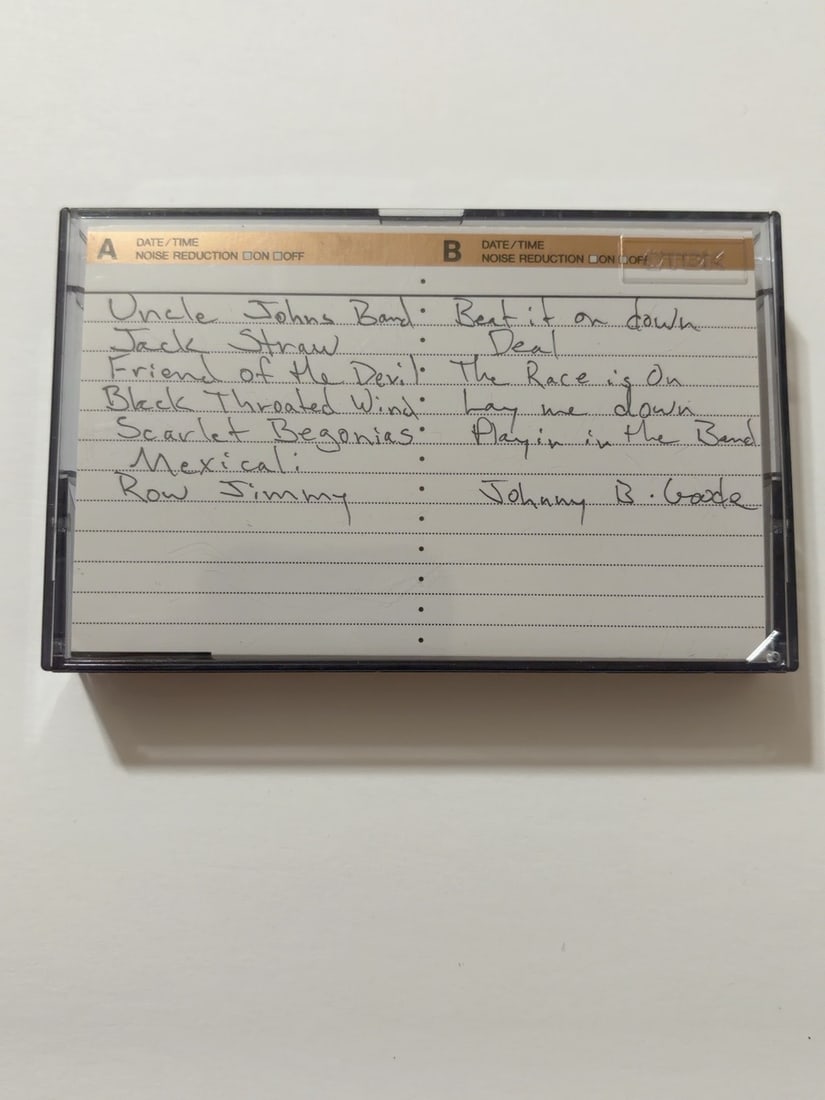 A DATE/TIME
NOISE REDUCTION ON OFF
Uncle Johns Band
Jack Straw
Friend of the Devil
Black Throated Wind
Scarlet Begonias
Mexicali
Row Jimmy
B DATE/TIME
NOISE REDUCTION ON OFF
Beat it on down
Deal
The Race is On
Lay me down
Playin in the Band
Johnny B. Goode